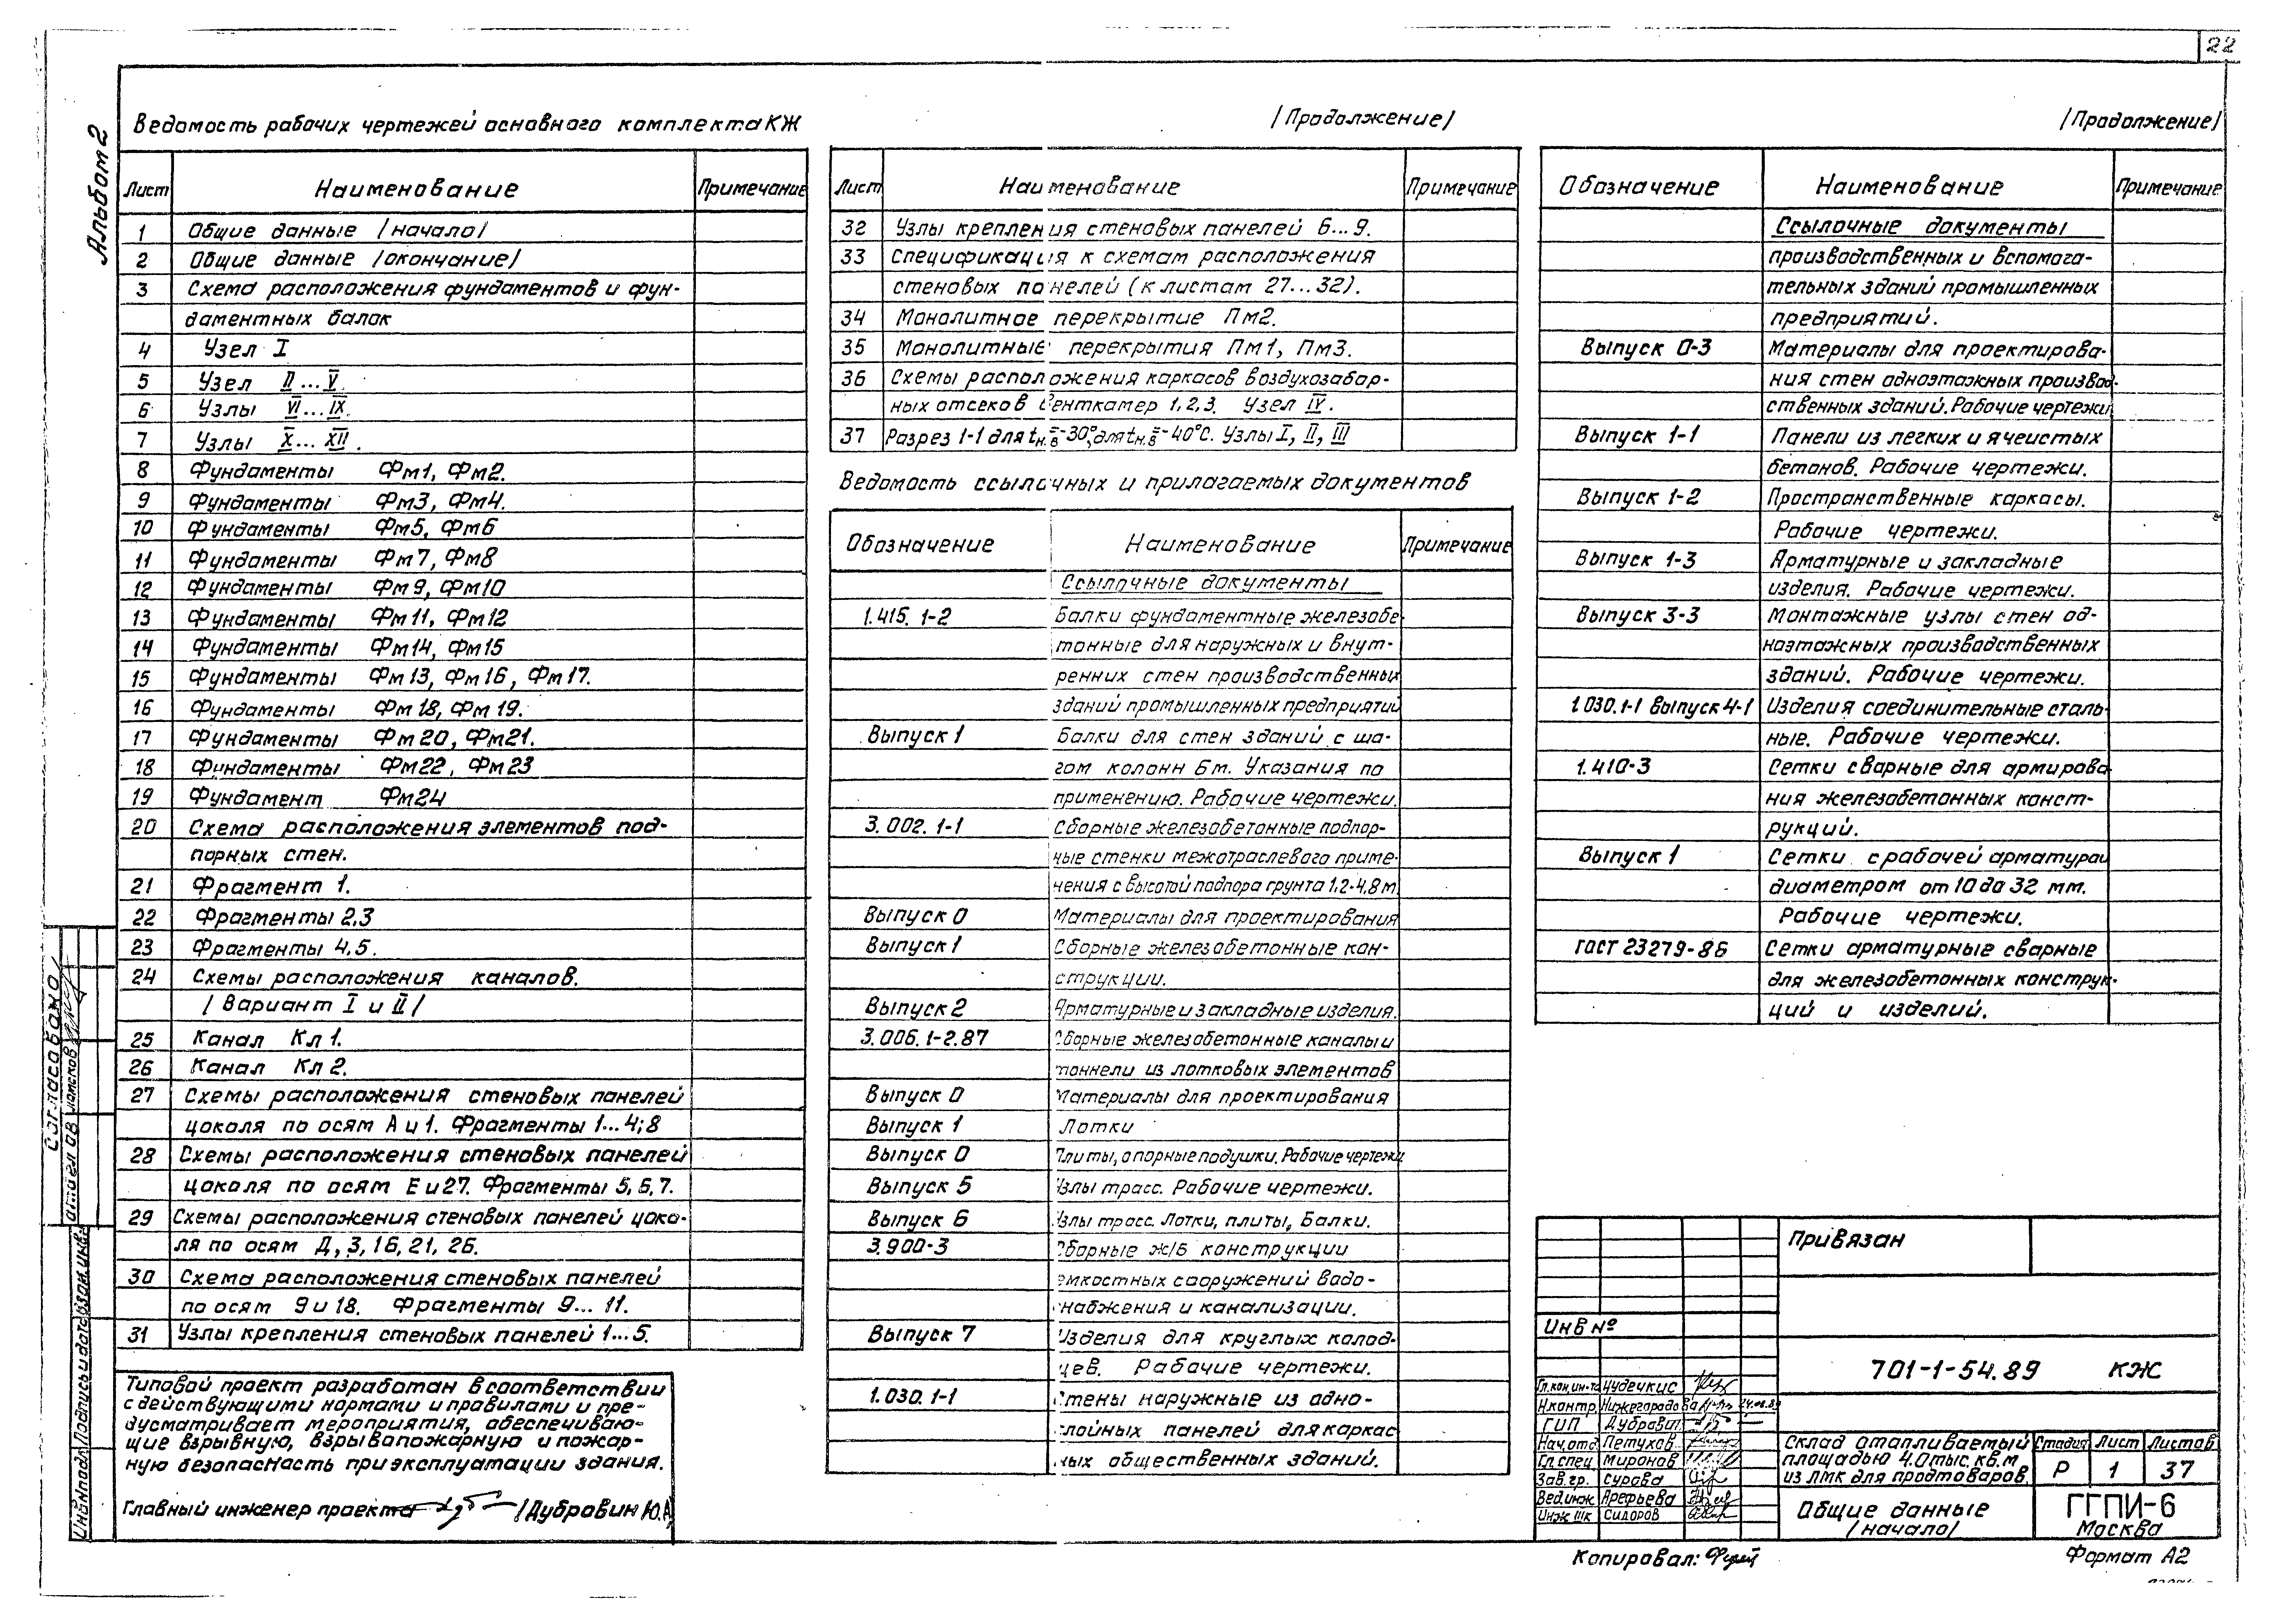 22
Альбом 2
Ведомость рабочих чертежей основного комплекта КЖ
Лист Наименование Примечание
1 Общие данные /начало/
2 Общие данные /окончание/
3 Схема расположения фундаментов и фун-
даментных балок
4 Узел I
5 Узел II...V.
6 Узлы VI...IX.
7 Узлы X...XII.
8 Фундаменты Фм1, Фм2.
9 Фундаменты Фм3, Фм4.
10 Фундаменты Фм5, Фм6
11 Фундаменты Фм7, Фм8
12 Фундаменты Фм9, Фм10
13 Фундаменты Фм11, Фм12
14 Фундаменты Фм14, Фм15
15 Фундаменты Фм13, Фм16, Фм17.
16 Фундаменты Фм18, Фм19.
17 Фундаменты Фм20, Фм21.
18 Фундаменты Фм22, Фм23
19 Фундамент Фм24
20 Схема расположения элементов под-
порных стен.
21 Фрагмент 1.
22 Фрагменты 2,3
23 Фрагменты 4,5.
24 Схемы расположения каналов.
/Вариант I и II/
25 Канал Кл 1.
26 Канал Кл 2.
27 Схемы расположения стеновых панелей
цоколя по осям А и 1. Фрагменты 1...4;8
28 Схемы расположения стеновых панелей
цоколя по осям Е и 27. Фрагменты 5,6,7.
29 Схемы расположения стеновых панелей цоко-
ля по осям Д, 3, 16, 21, 26.
30 Схема расположения стеновых панелей
по осям 9 и 18. Фрагменты 9...11.
31 Узлы крепления стеновых панелей 1...5.
Типовой проект разработан в соответствии
с действующими нормами и правилами и пре-
дусматривает мероприятия, обеспечиваю-
щие взрывную, взрывопожарную и пожар-
ную безопасность при эксплуатации здания.
Главный инженер проекта /Дубровин Ю.А/
/Продолжение/
Лист Наименование Примечание
32 Узлы крепления стеновых панелей 6...9.
33 Спецификация к схемам расположения
стеновых панелей (к листам 27...32).
34 Монолитное перекрытие Пм2.
35 Монолитные перекрытия Пм1, Пм3.
36 Схемы расположения каркасов воздухозабор-
ных отсеков венткамер 1,2,3. Узел IV.
37 Разрез 1-1 для tн.в=-30°, для tн.в=-40°С. Узлы I, II, III
Ведомость ссылочных и прилагаемых документов
Обозначение Наименование Примечание
Ссылочные документы
1.415.1-2 Балки фундаментные железобе-
тонные для наружных и внут-
ренних стен производственных
зданий промышленных предприятий
Выпуск 1 Балки для стен зданий с ша-
гом колонн 6м. Указания по
применению. Рабочие чертежи.
3.002.1-1 Сборные железобетонные подпор-
ные стенки межотраслевого приме-
нения с высотой подпора грунта 1,2-4,8 м.
Выпуск 0 Материалы для проектирования
Выпуск 1 Сборные железобетонные кон-
струкции.
Выпуск 2 Арматурные и закладные изделия.
3.006.1-2.87 Сборные железобетонные каналы и
тоннели из лотковых элементов
Выпуск 0 Материалы для проектирования
Выпуск 1 Лотки
Выпуск 0 Плиты, опорные подушки. Рабочие чертежи
Выпуск 5 Узлы трасс. Рабочие чертежи.
Выпуск 6 Узлы трасс. Лотки, плиты, балки.
3.900-3 Сборные ж/б конструкции
емкостных сооружений водо-
снабжения и канализации.
Выпуск 7 Изделия для круглых колод-
цев. Рабочие чертежи.
1.030.1-1 Стены наружные из одно-
слойных панелей для каркас
ных общественных зданий.
/Продолжение/
Обозначение Наименование Примечание
Ссылочные документы
производственных и вспомога-
тельных зданий промышленных
предприятий.
Выпуск 0-3 Материалы для проектирова-
ния стен одноэтажных производ-
ственных зданий. Рабочие чертежи
Выпуск 1-1 Панели из легких и ячеистых
бетонов. Рабочие чертежи.
Выпуск 1-2 Пространственные каркасы.
Рабочие чертежи.
Выпуск 1-3 Арматурные и закладные
изделия. Рабочие чертежи.
Выпуск 3-3 Монтажные узлы стен од-
ноэтажных производственных
зданий. Рабочие чертежи.
1.030.1-1 выпуск 4-1 Изделия соединительные сталь-
ные. Рабочие чертежи.
1.410-3 Сетки сварные для армирова-
ния железобетонных конст-
рукций.
Выпуск 1 Сетки с рабочей арматурой
диаметром от 10 до 32 мм.
Рабочие чертежи.
ГОСТ 23279-86 Сетки арматурные сварные
для железобетонных конструк-
ций и изделий.
Привязан
Инв №
701-1-54.89 КЖ
Гл.кон.ин-та Чудечкис
Н.контр. Нижегородова
ГИП Дубровин
Нач.отд Петухов
Гл.спец Миронов
Зав.гр. Сурова
Вед.инж Арефьева
Инж IIIк Сидоров
Склад отапливаемый
площадью 4.0 тыс. кв. м
из ЛМК для продтоваров.
Стадия Лист Листов
Р 1 37
Общие данные
/начало/
ГГПИ-6
Москва
Копировал:
Формат А2
Согласовано
отдел ОВ
Инв№подл Подпись и дата Взам.инв.